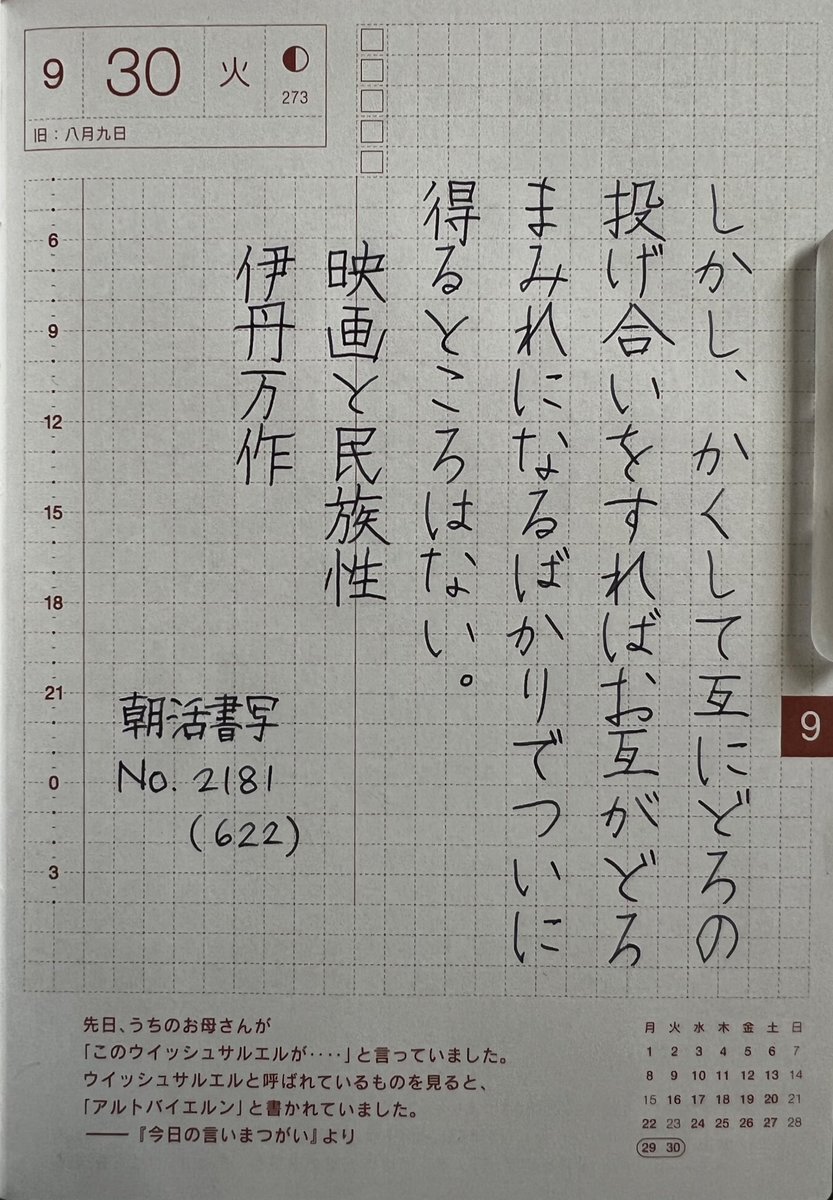 9 30 火
273
旧：八月九日
しかし、かくして互にどろの
投げ合いをすればお互がどろ
まみれになるばかりでついに
得るところはない。
映画と民族性
伊丹万作
朝活書写
No. 2181
(622)
6
9
12
15
18
21
0
3
9
先日、うちのお母さんが
「このウイッシュサルエルが‥‥」と言っていました。
ウイッシュサルエルと呼ばれているものを見ると、
「アルトバイエルン」と書かれていました。
──『今日の言いまつがい』より
月 火 水 木 金 土 日
1 2 3 4 5 6 7
8 9 10 11 12 13 14
15 16 17 18 19 20 21
22 23 24 25 26 27 28
29 30